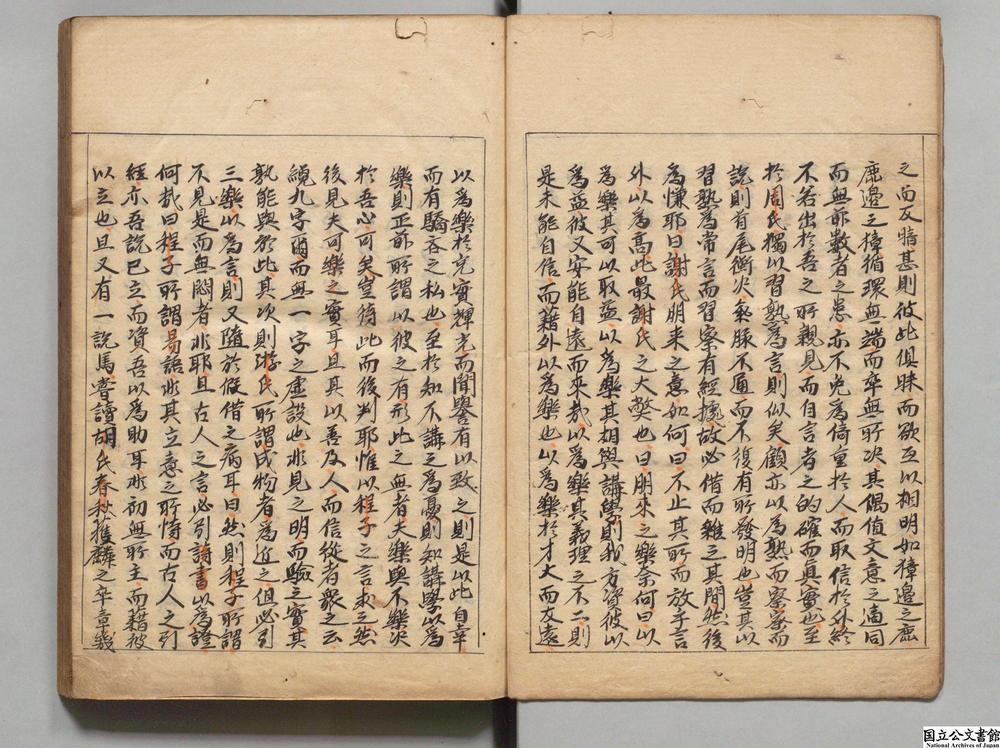 之而反晴甚則彼此俱昧而欲互以相明如獐邊之鹿
鹿邊之獐循環無端而卒無所决其偶值文意之適同
而無所數者之患亦不免為倚重於人而取信於外終
不若出於吾之所親見而自言者之的確而真實也至
於周氏獨以習熟為言則似矣顧亦以為熟而察察而
說則首尾衡火氣脉不通而不復有所發明也豈其以
習熟為常言而習察有經據故必借而雜之其間然後
為慊耶曰謝氏朋来之意如何曰不止其所而放乎言
外以為高此最謝氏之大弊也曰朋来之樂奈何曰以
為樂其可以取益以為樂其相與講學則我方資彼以
為益彼又安能自遠而来哉以為樂其義理之不二則
是未能自信而藉外以為樂也以為樂於才大而友遠
以為樂於充實輝光而聞譽有以致之則是以此自幸
而有驕吝之私也至於知不講之為憂則知講學以為
樂則正前所謂以彼之有形此之無者夫樂與不樂决
於吾心可矣豈待此而後判耶惟以程子之言求之然
後見夫可樂之實耳且其以善及人而信從者衆之云
纔九字爾而無一字之虛設也非見之明而驗之實其
孰能與於此其次則游氏所謂成物者為近之但必引
三樂以為言則又隨於假借之病耳曰然則程子所謂
不見是而無悶者非耶且古人之言必引詩書以為證
何哉曰程子所謂易語非其立意之所恃而古人之引
經亦吾說已立而資吾以為助耳非初無所主而藉彼
以立也且又有一說焉嘗讀胡氏春秋獲麟之卒章幾
国立公文書館
National Archives of Japan